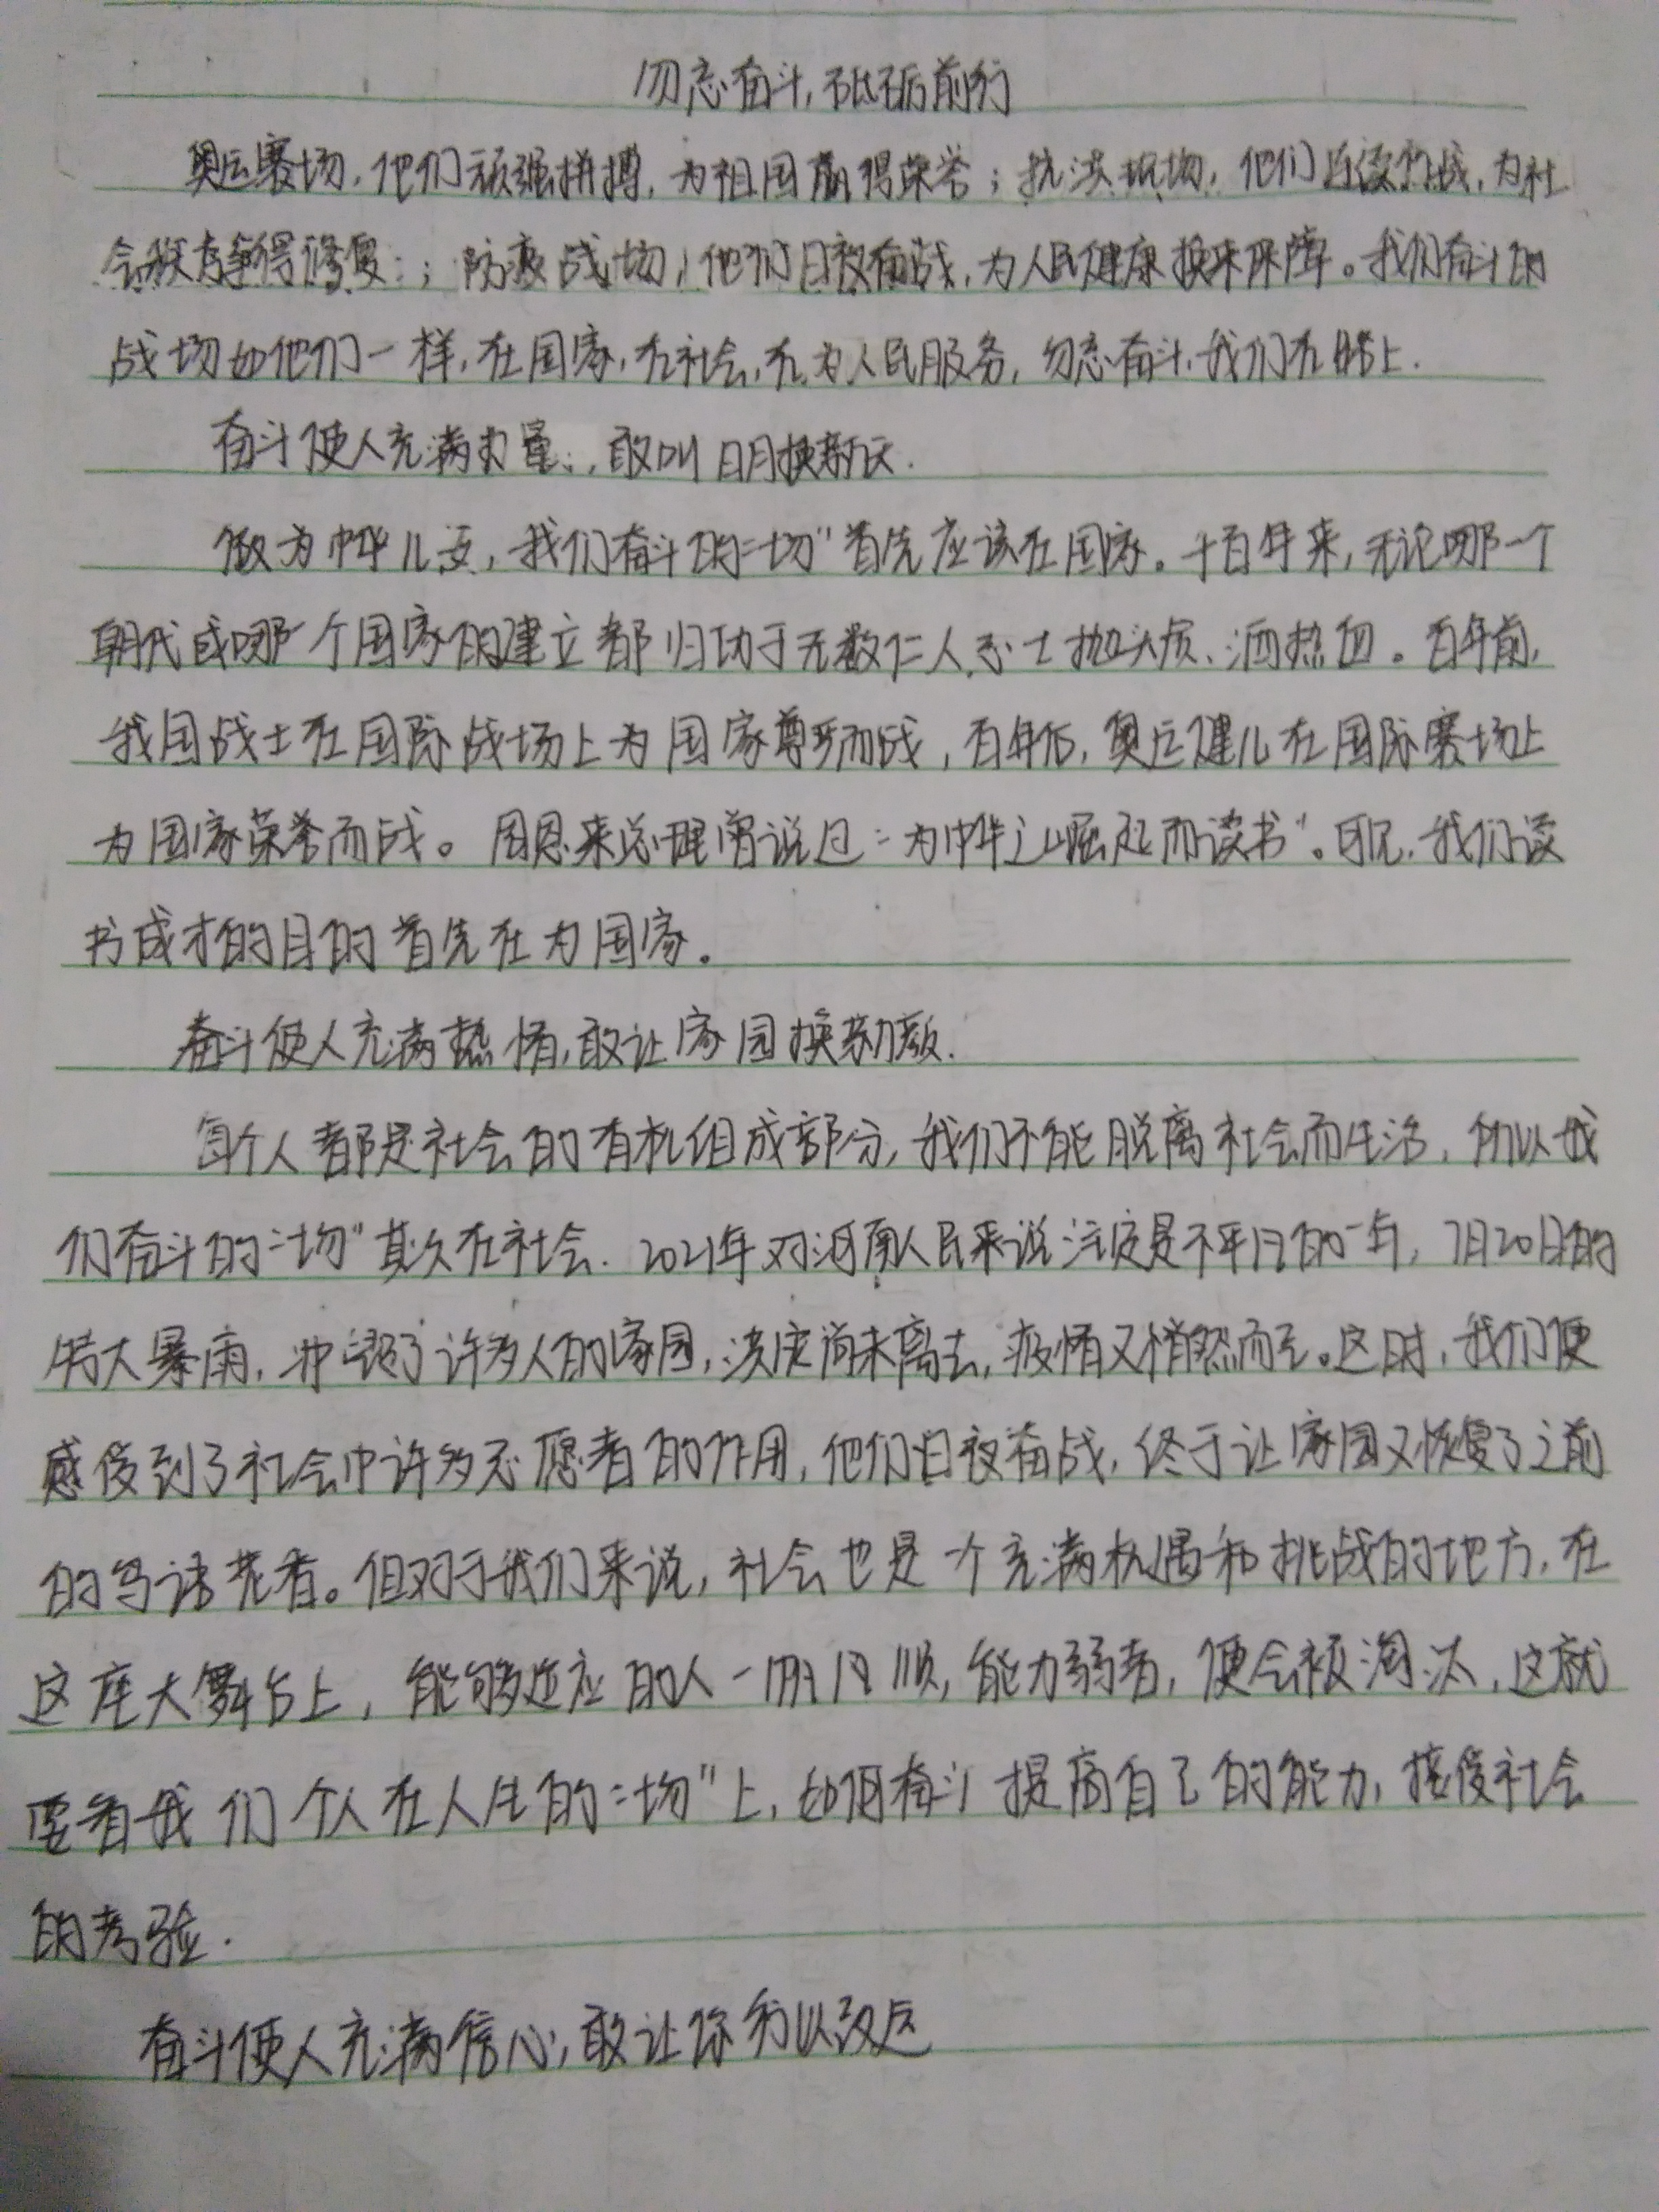 勿忘奋斗,砥砺前行
奥运赛场,他们顽强拼搏,为祖国赢得荣誉;抗洪现场,他们连续作战,为社
会秩序争得修复;防疫战场,他们日夜奋战,为人民健康换来保障。我们奋斗的
战场如他们一样,在国家,在社会,在为人民服务,勿忘奋斗,我们在路上.
奋斗使人充满力量,敢叫日月换新天.
做为中华儿女,我们奋斗的“场”首先应该在国家。千百年来,无论哪一个
朝代或哪一个国家的建立都归功于无数仁人志士抛头颅、洒热血。百年前,
我国战士在国际战场上为国家尊严而战,百年后,奥运健儿在国际赛场上
为国家荣誉而战。周恩来总理曾说过“为中华之崛起而读书”。可见,我们读
书成才的目的首先在为国家。
奋斗使人充满热情,敢让家园换新颜.
每个人都是社会的有机组成部分,我们不能脱离社会而生活,所以我
们奋斗的“场”其次在社会.2021年对河南人民来说注定是不平凡的一年,7月20日的
特大暴雨,冲毁了许多人的家园,洪水尚未离去,疫情又悄然而至。这时,我们便
感受到了社会中许多志愿者的作用,他们日夜奋战,终于让家园又恢复了之前
的鸟语花香。但对于我们来说,社会也是一个充满机遇和挑战的地方,在
这座大舞台上,能够适应的人一帆风顺,能力弱者,便会被淘汰,这就
要看我们个人在人生的“场”上,如何奋斗提高自己的能力,接受社会
的考验.
奋斗使人充满信心,敢让你我以致远